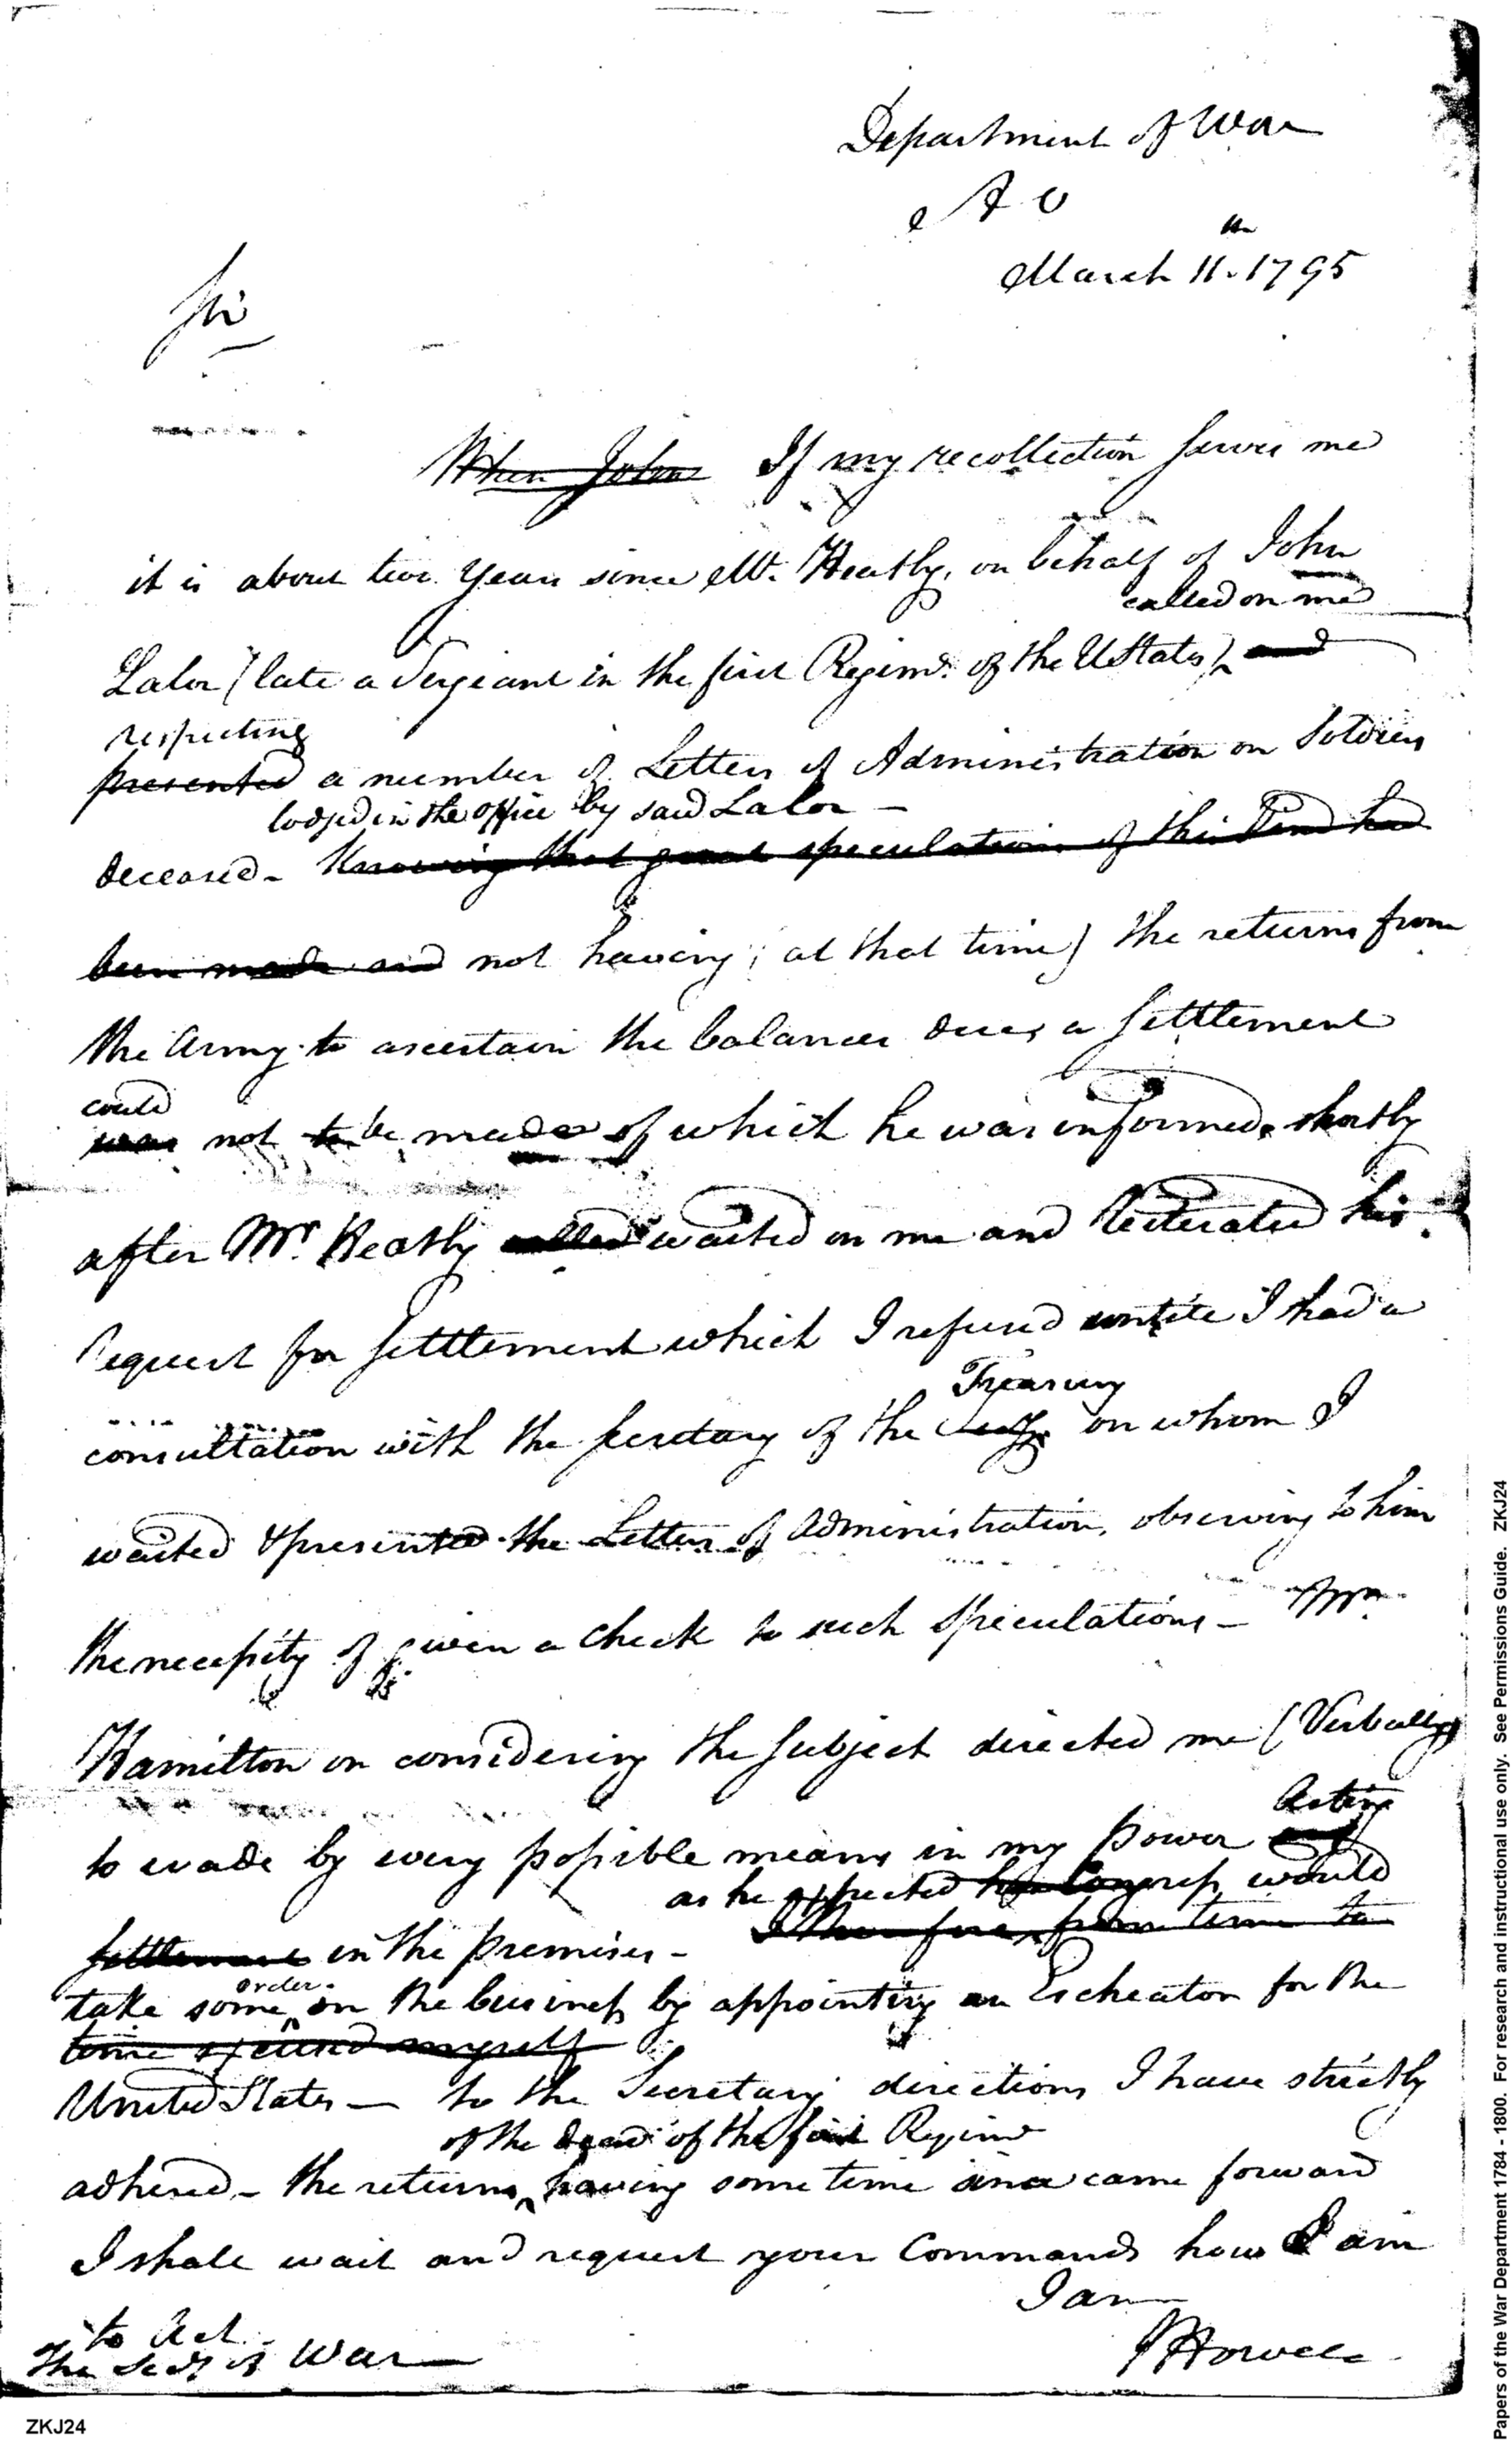 Department of War
A O
March 11th 1795
Sir
When John If my recollection serves me
it is about two Years since Mr. Heatly, on behalf of John
called on me
Lalor (late a Sergeant in the first Regimt. of the UStates) and
respecting
presented a number of Letters of Administration on Soldiers
lodged in the office by said Lalor -
deceased - Knowing that great speculations of this kind had
been made and not having, at that time) the returns from
the Army to ascertain the balances due, a settlement
could
was not to be made of which he was informed. shortly
after Mr. Heatly called waited on me and Reiterated his
request for settlement which I refused untile I had a
Treasury
consultation with the Secretary of the on whom I
waited & presented the Letters of Administration, observing to him
the necessity of given a check to such Speculations - Mr.
Hamilton on considering the subject directed me (Verbally)
to evade by every possible means in my power
Acting
as he expected Congress would
settlement in the premises - I therefore, from time to
order
take some on the business by appointing an Escheator for the
time excused myself
United States - to the Secretary directions I have strictly
of the dead of the first Regimt
adhered - the returns having some time since came forward
I shall wait and request your Commands how I am
to Act.
I am
JHowell
The Secy of War
ZKJ24
Papers of the War Department 1784 - 1800. For research and instructional use only. See Permissions Guide. ZKJ24